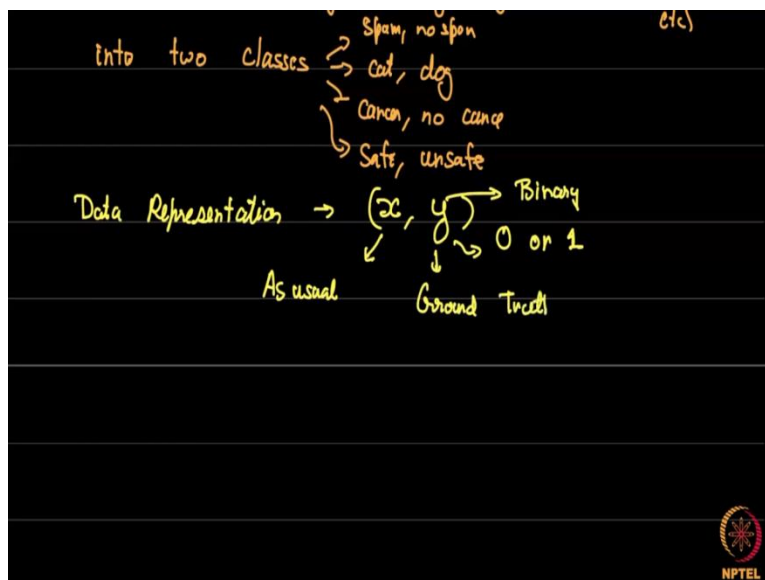 Spam, no spon
etc)
into two classes → cat, dog
Cancer, no cance
Safe, unsafe
Data Representation → (x, y) → Binary
0 or 1
As usual
Ground Truth
NPTEL